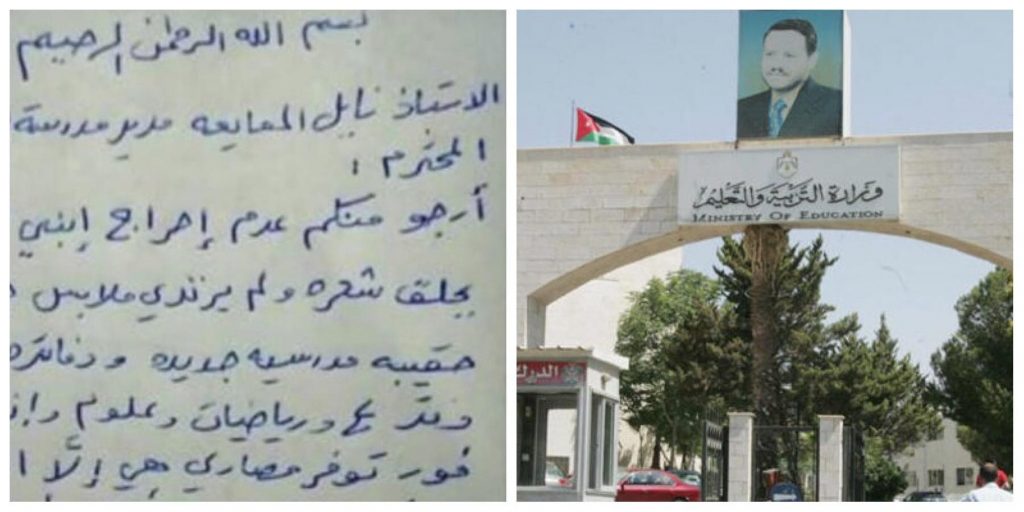 بسم الله الرحمن الرحيم
الاستاذ نايل المعايعه مدير مدرسة
المحترم ،
أرجو منكم عدم إحراج إبني
يحلق شعره ولم يرتدي ملابس
حقيبه مدرسيه جديده ودفاتره
ورياضيات وعلوم
فور توفر مصاري هي إلّا ا
وزارة التربية والتعليم
MINISTRY OF EDUCATION
الدرك